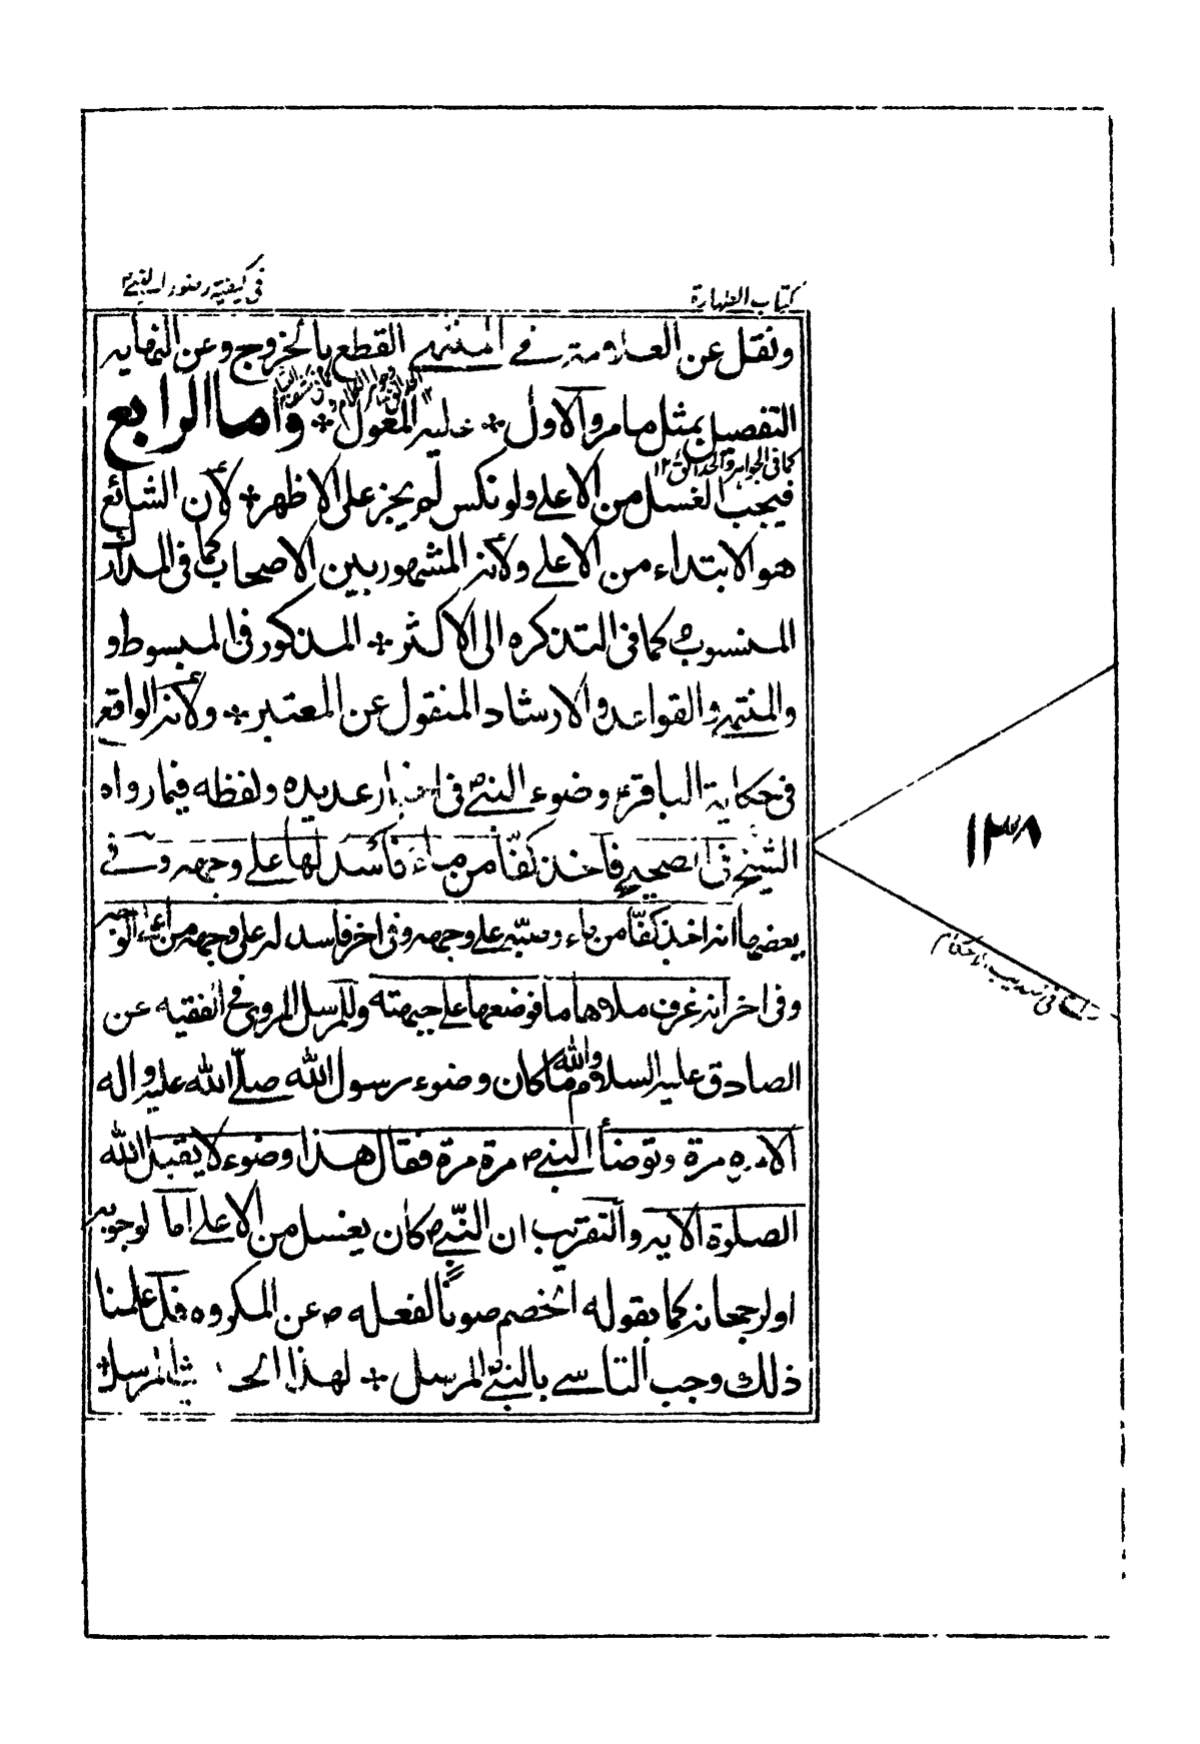 كتاب الطهارة
في كيفية وضوء النبي ص
ونقل عن العلامة في المنتهى القطع بالخروج وعن النهايه
التفصيل بمثل ما مر والاول + عليه المعول + واما الرابع
كما في الجواهر والحدائق ١٢
فيجب الغسل من الاعلى ولو نكس لم يجز على الاظهر + لأن الشائع
هو الابتداء من الاعلى ولأنه المشهور بين الاصحاب كما في المدارك
المنسوب كما في التذكره الى الاكثر + المذكور في المبسوط و
والمنتهى والقواعد والارشاد المنقول عن المعتبر + ولأنه الواقع
في حكاية الباقر ع وضوء النبي ص في اخبار عديده ولفظه فيما رواه
الشيخ في الصحيح فاخذ كفّا من ماء فأسدلها على وجهه وفي
بعضها انه اخذ كفّا من ماء وصبّه على وجهه وفي اخر فاسدله على وجهه من اعلى الوجه
وفي اخر انه غرف ملأها ما فوضعها على جبهته وللمرسل المروي في الفقيه عن
الصادق عليه السلام والله ما كان وضوء رسول الله صلّى الله عليه واله
الا مرة مرة وتوضأ النبي ص مرة مرة فقال هذا وضوء لا يقبل الله
الصلوة الا به والتقريب ان النبّي ص كان يغسل من الاعلى اما لوجوبه
او لرجحانه كما يقوله الخصم صونًا لفعله ص عن المكروه فكل علمنا
ذلك وجب التاسي بالنبي ص المرسل + لهذا الحديث المرسل +
١٣٨